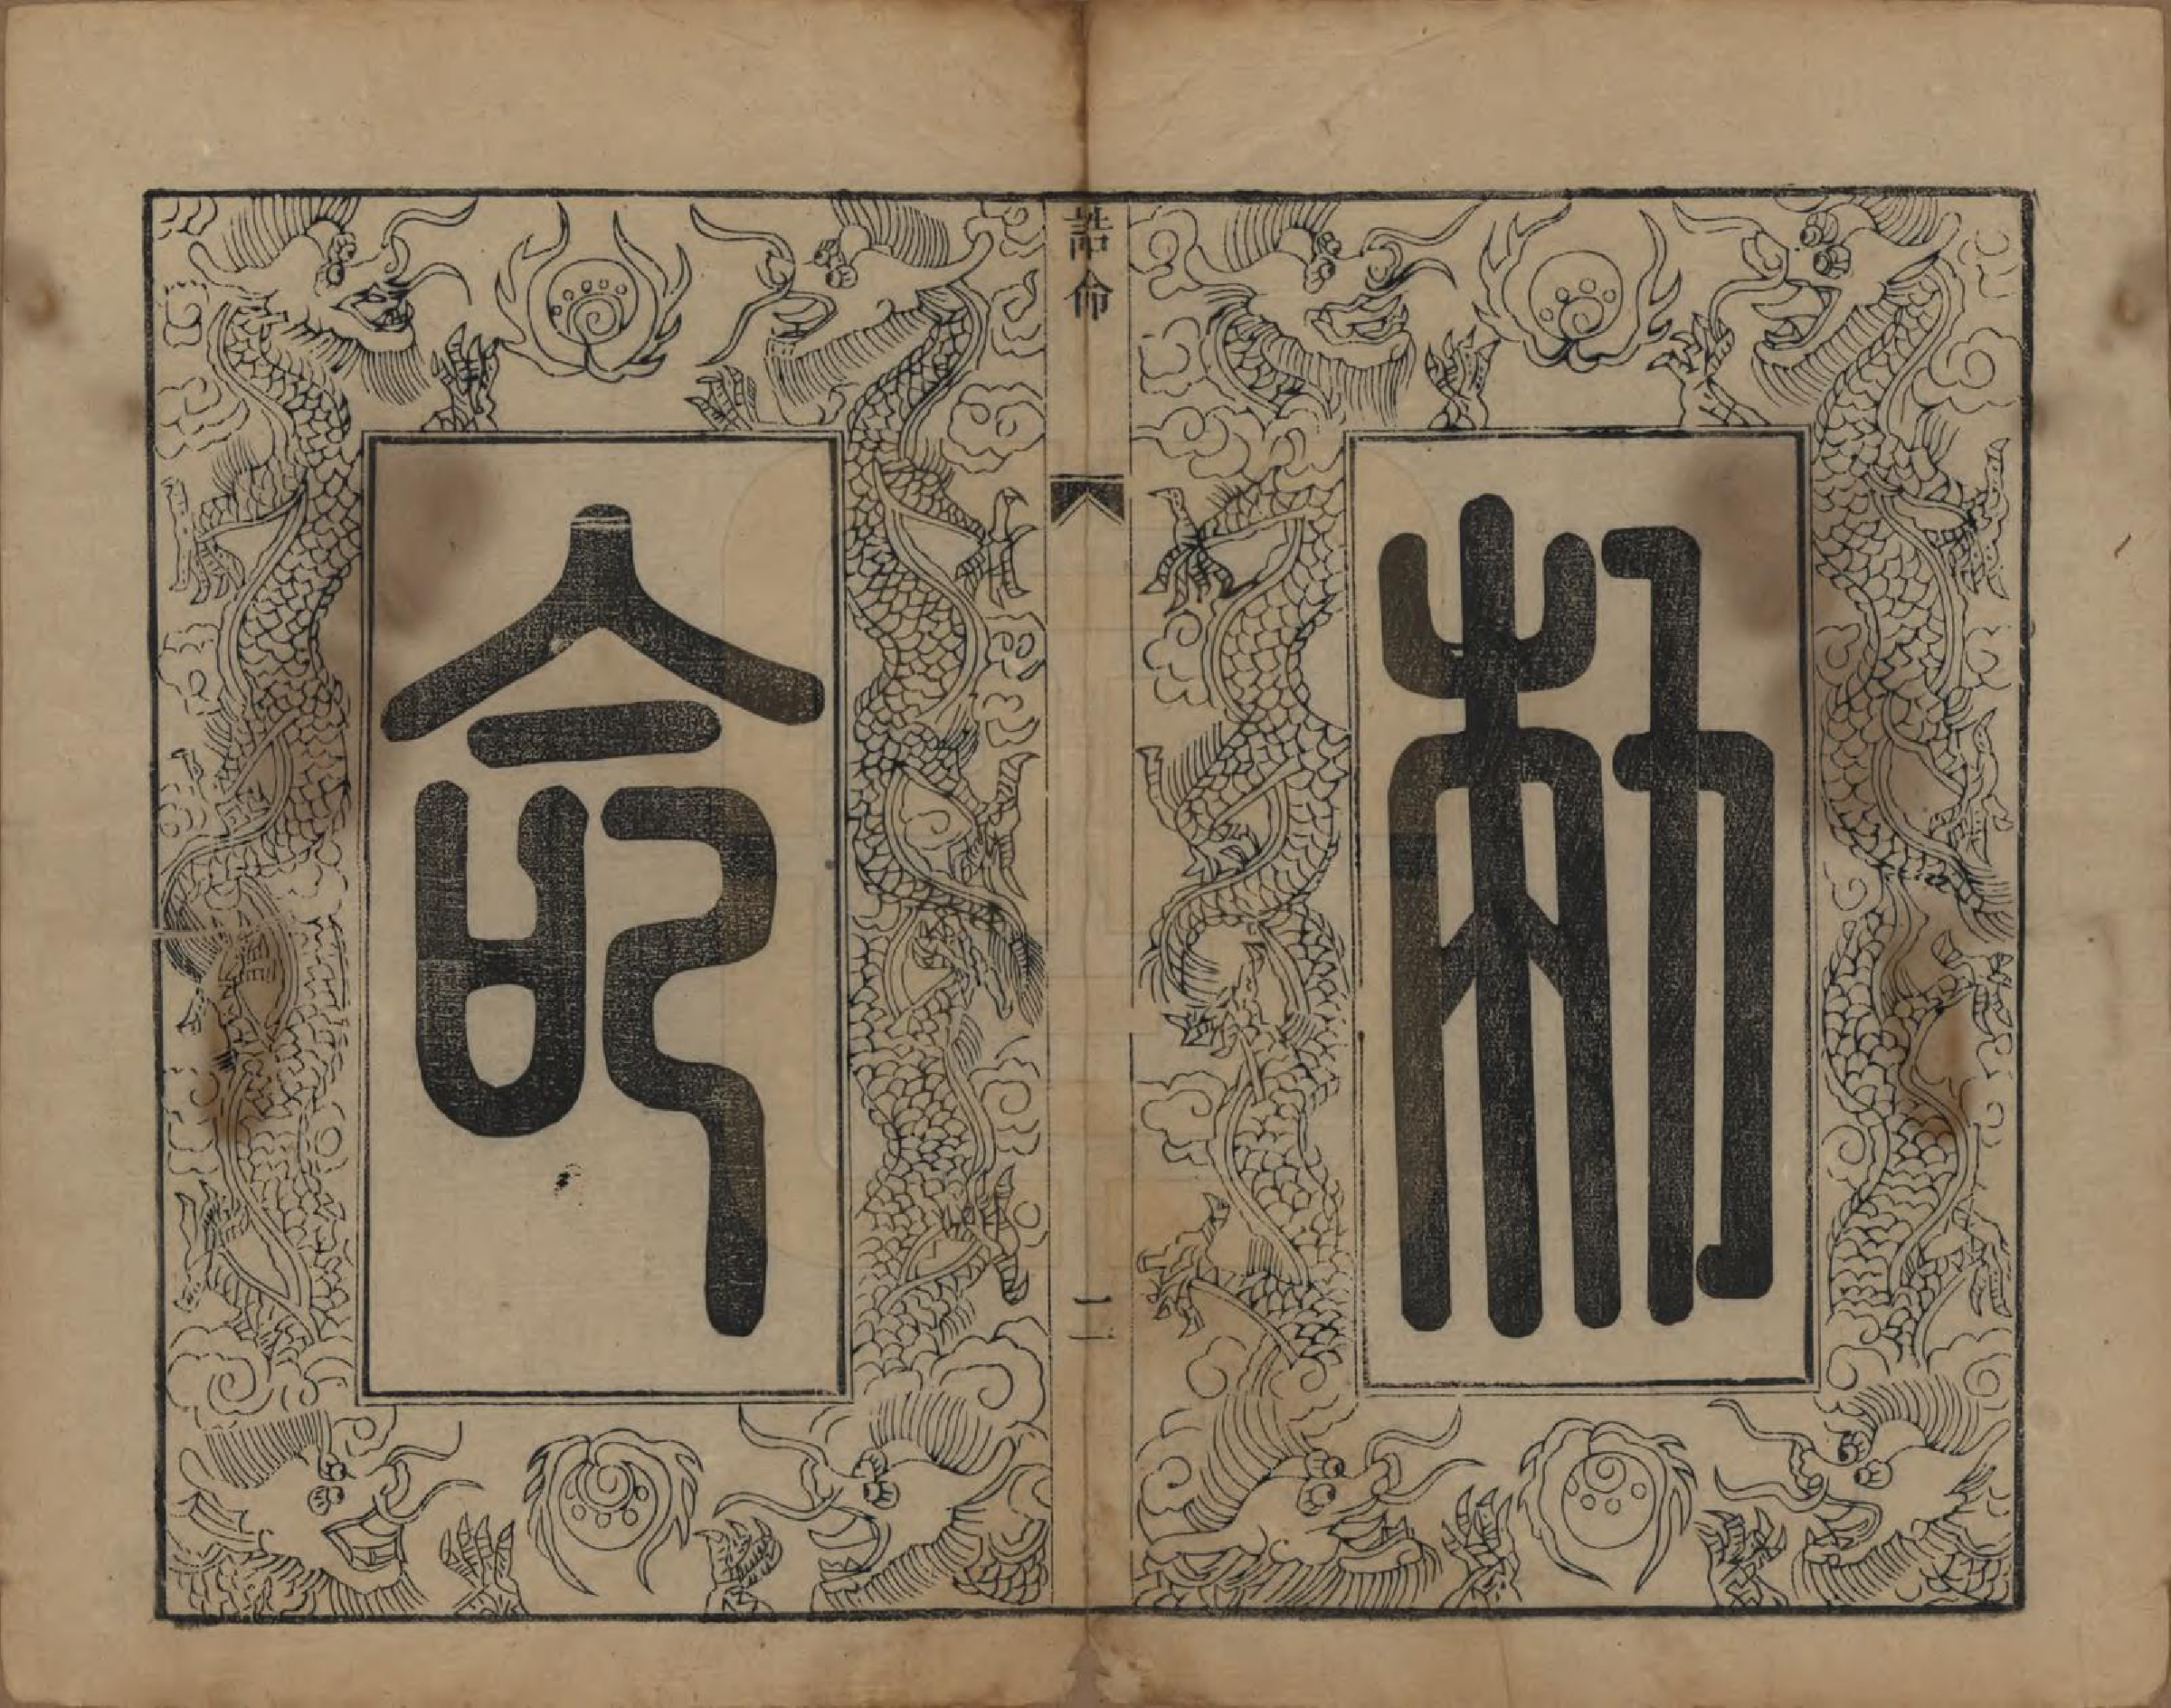 勑
誥命
二
命